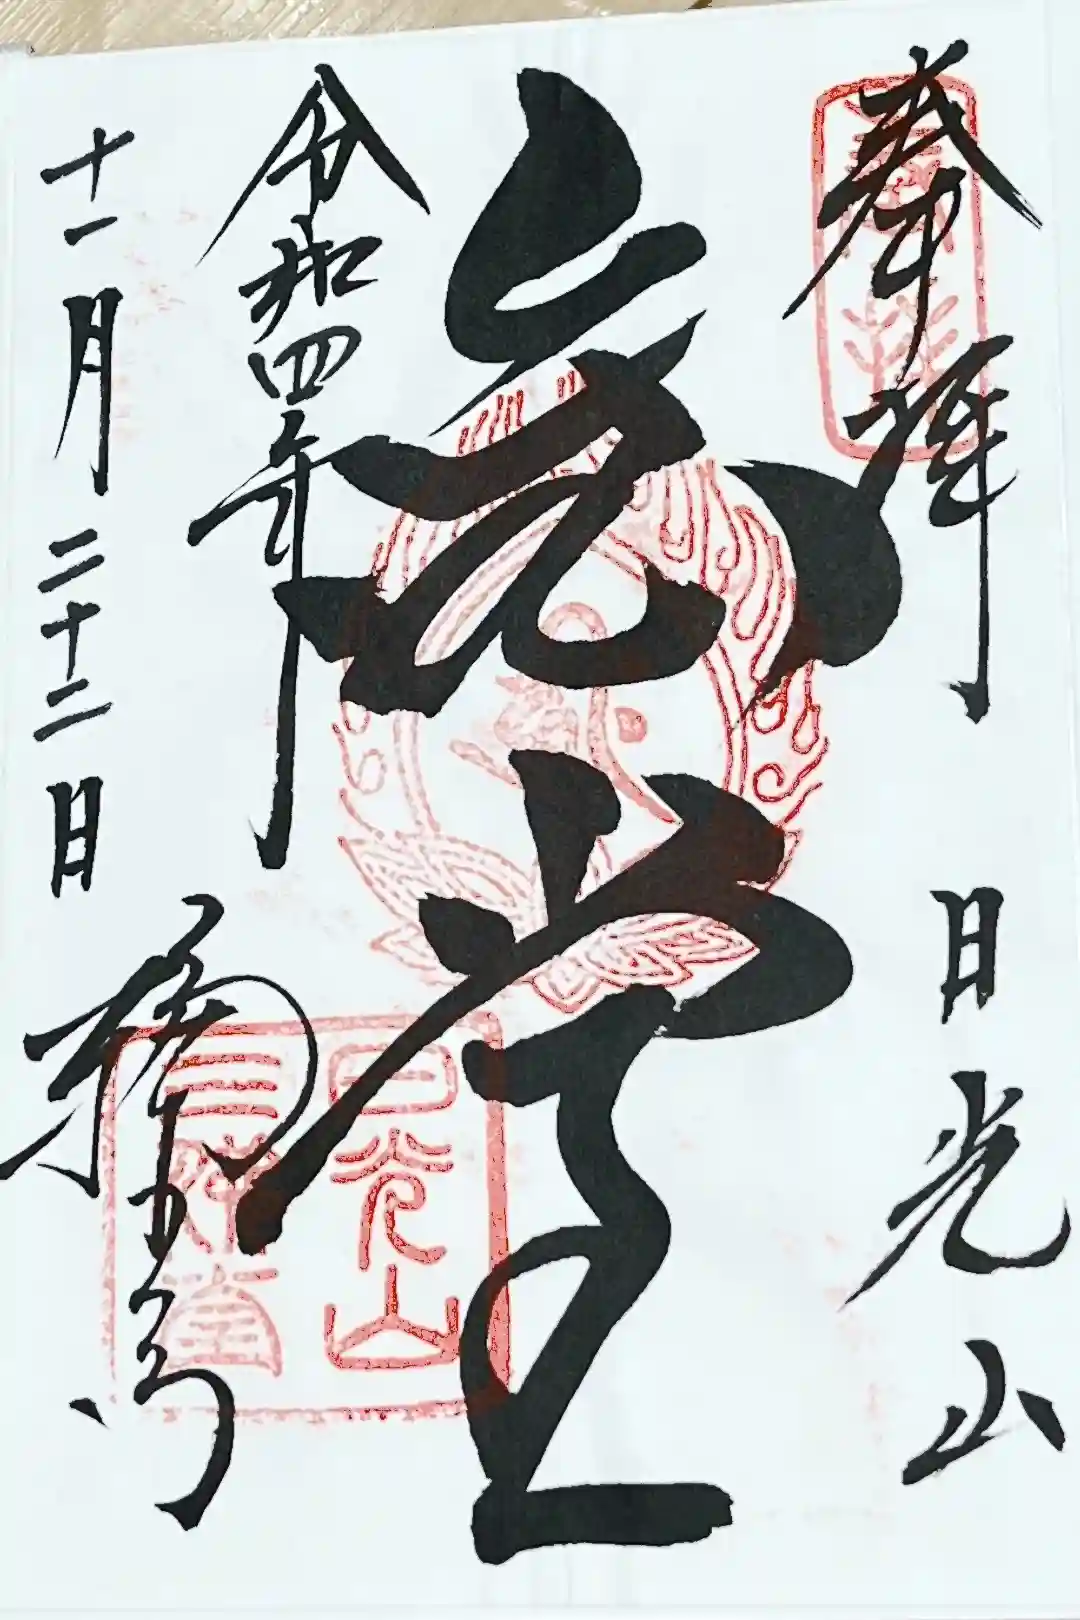 奉拝
日光山
堂
令和四年
十一月二十二日
輪王寺
日光山
三佛堂